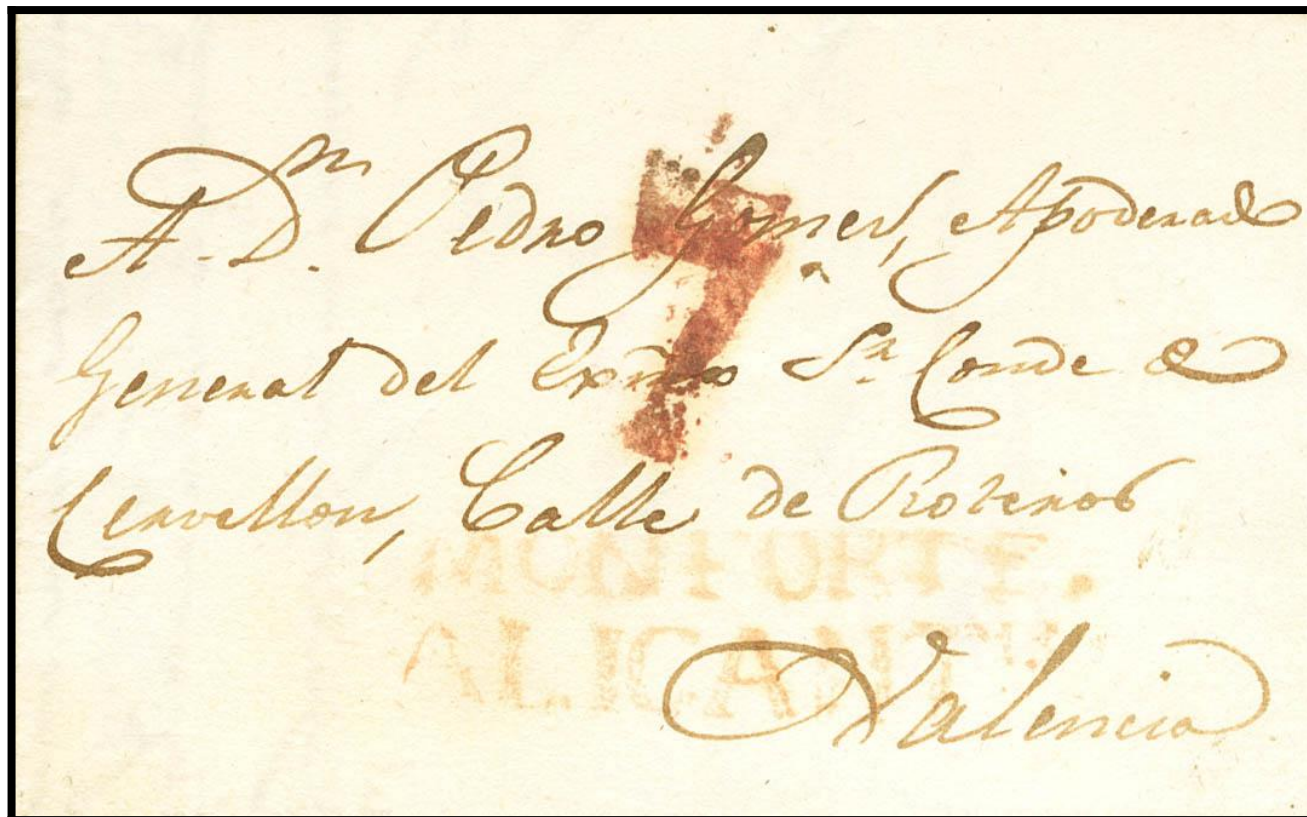 A Dn. Pedro Gomes, Apoderado
General del Exmo Sr. Conde de
Cervellon, Calle de Roteros
7
MONFORTE.
ALICANTE
Valencia